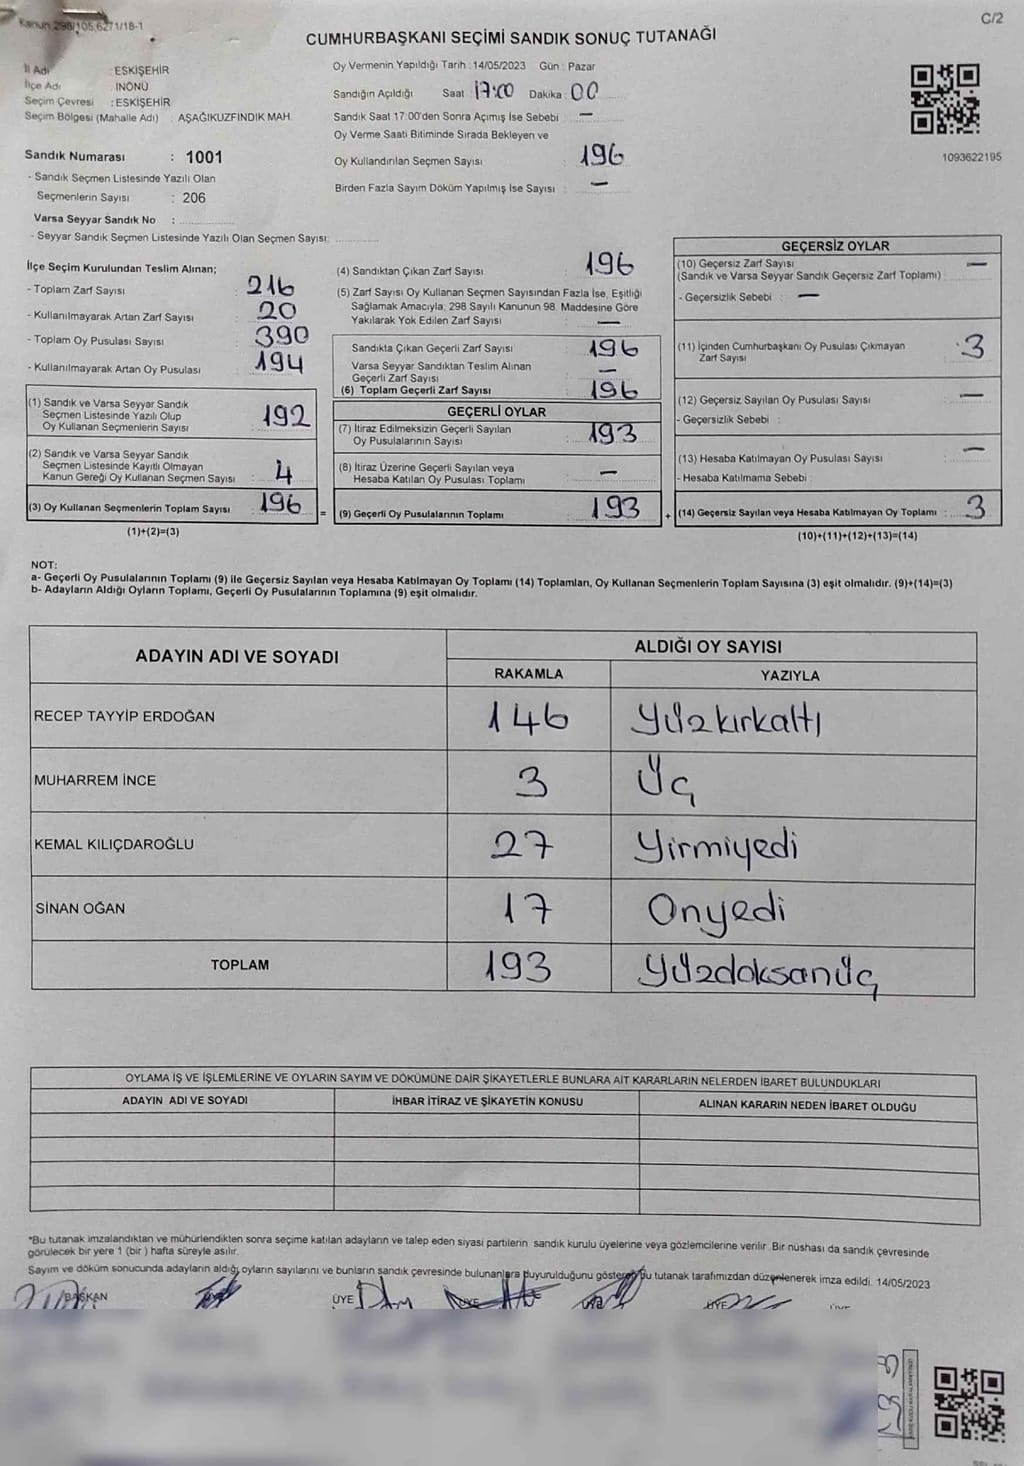 Kanun 298/105,6271/18-1
C/2
CUMHURBAŞKANI SEÇİMİ SANDIK SONUÇ TUTANAĞI
İl Adı : ESKİŞEHİR
İlçe Adı : İNÖNÜ
Seçim Çevresi : ESKİŞEHİR
Seçim Bölgesi (Mahalle Adı) : AŞAĞIKUZFINDIK MAH.
Sandık Numarası : 1001
- Sandık Seçmen Listesinde Yazılı Olan
Seçmenlerin Sayısı : 206
Varsa Seyyar Sandık No :
- Seyyar Sandık Seçmen Listesinde Yazılı Olan Seçmen Sayısı:
Oy Vermenin Yapıldığı Tarih : 14/05/2023 Gün : Pazar
Sandığın Açıldığı Saat 17:00 Dakika : 00
Sandık Saat 17:00'den Sonra Açımış İse Sebebi : —
Oy Verme Saati Bitiminde Sırada Bekleyen ve
Oy Kullandırılan Seçmen Sayısı : 196
Birden Fazla Sayım Döküm Yapılmış İse Sayısı : —
1093622195
İlçe Seçim Kurulundan Teslim Alınan;
- Toplam Zarf Sayısı : 216
- Kullanılmayarak Artan Zarf Sayısı : 20
- Toplam Oy Pusulası Sayısı : 390
- Kullanılmayarak Artan Oy Pusulası : 194
(1) Sandık ve Varsa Seyyar Sandık
Seçmen Listesinde Yazılı Olup
Oy Kullanan Seçmenlerin Sayısı : 192
(2) Sandık ve Varsa Seyyar Sandık
Seçmen Listesinde Kayıtlı Olmayan
Kanun Gereği Oy Kullanan Seçmen Sayısı : 4
(3) Oy Kullanan Seçmenlerin Toplam Sayısı : 196
(1)+(2)=(3)
=
(4) Sandıktan Çıkan Zarf Sayısı : 196
(5) Zarf Sayısı Oy Kullanan Seçmen Sayısından Fazla İse, Eşitliği
Sağlamak Amacıyla; 298 Sayılı Kanunun 98. Maddesine Göre
Yakılarak Yok Edilen Zarf Sayısı : —
Sandıkta Çıkan Geçerli Zarf Sayısı : 196
Varsa Seyyar Sandıktan Teslim Alınan
Geçerli Zarf Sayısı : —
(6) Toplam Geçerli Zarf Sayısı : 196
GEÇERLİ OYLAR
(7) İtiraz Edilmeksizin Geçerli Sayılan
Oy Pusulalarının Sayısı : 193
(8) İtiraz Üzerine Geçerli Sayılan veya
Hesaba Katılan Oy Pusulası Toplamı : —
(9) Geçerli Oy Pusulalarının Toplamı : 193
+
GEÇERSİZ OYLAR
(10) Geçersiz Zarf Sayısı —
(Sandık ve Varsa Seyyar Sandık Geçersiz Zarf Toplamı) :
- Geçersizlik Sebebi : —
(11) İçinden Cumhurbaşkanı Oy Pusulası Çıkmayan
Zarf Sayısı : 3
(12) Geçersiz Sayılan Oy Pusulası Sayısı : —
- Geçersizlik Sebebi :
(13) Hesaba Katılmayan Oy Pusulası Sayısı : —
- Hesaba Katılmama Sebebi :
(14) Geçersiz Sayılan veya Hesaba Katılmayan Oy Toplamı : 3
(10)+(11)+(12)+(13)=(14)
NOT:
a- Geçerli Oy Pusulalarının Toplamı (9) ile Geçersiz Sayılan veya Hesaba Katılmayan Oy Toplamı (14) Toplamları, Oy Kullanan Seçmenlerin Toplam Sayısına (3) eşit olmalıdır. (9)+(14)=(3)
b- Adayların Aldığı Oyların Toplamı, Geçerli Oy Pusulalarının Toplamına (9) eşit olmalıdır.
ADAYIN ADI VE SOYADI
ALDIĞI OY SAYISI
RAKAMLA YAZIYLA
RECEP TAYYİP ERDOĞAN 146 Yüzkırkaltı
MUHARREM İNCE 3 Üç
KEMAL KILIÇDAROĞLU 27 Yirmiyedi
SİNAN OĞAN 17 Onyedi
TOPLAM 193 Yüzdoksanüç
OYLAMA İŞ VE İŞLEMLERİNE VE OYLARIN SAYIM VE DÖKÜMÜNE DAİR ŞİKAYETLERLE BUNLARA AİT KARARLARIN NELERDEN İBARET BULUNDUKLARI
ADAYIN ADI VE SOYADI İHBAR İTİRAZ VE ŞİKAYETİN KONUSU ALINAN KARARIN NEDEN İBARET OLDUĞU
*Bu tutanak imzalandıktan ve mühürlendikten sonra seçime katılan adayların ve talep eden siyasi partilerin sandık kurulu üyelerine veya gözlemcilerine verilir. Bir nüshası da sandık çevresinde
görülecek bir yere 1 (bir ) hafta süreyle asılır.
Sayım ve döküm sonucunda adayların aldığı oyların sayılarını ve bunların sandık çevresinde bulunanlara duyurulduğunu gösterep bu tutanak tarafımızdan düzenlenerek imza edildi. 14/05/2023
BAŞKAN ÜYE ÜYE ÜYE ÜYE ÜYE